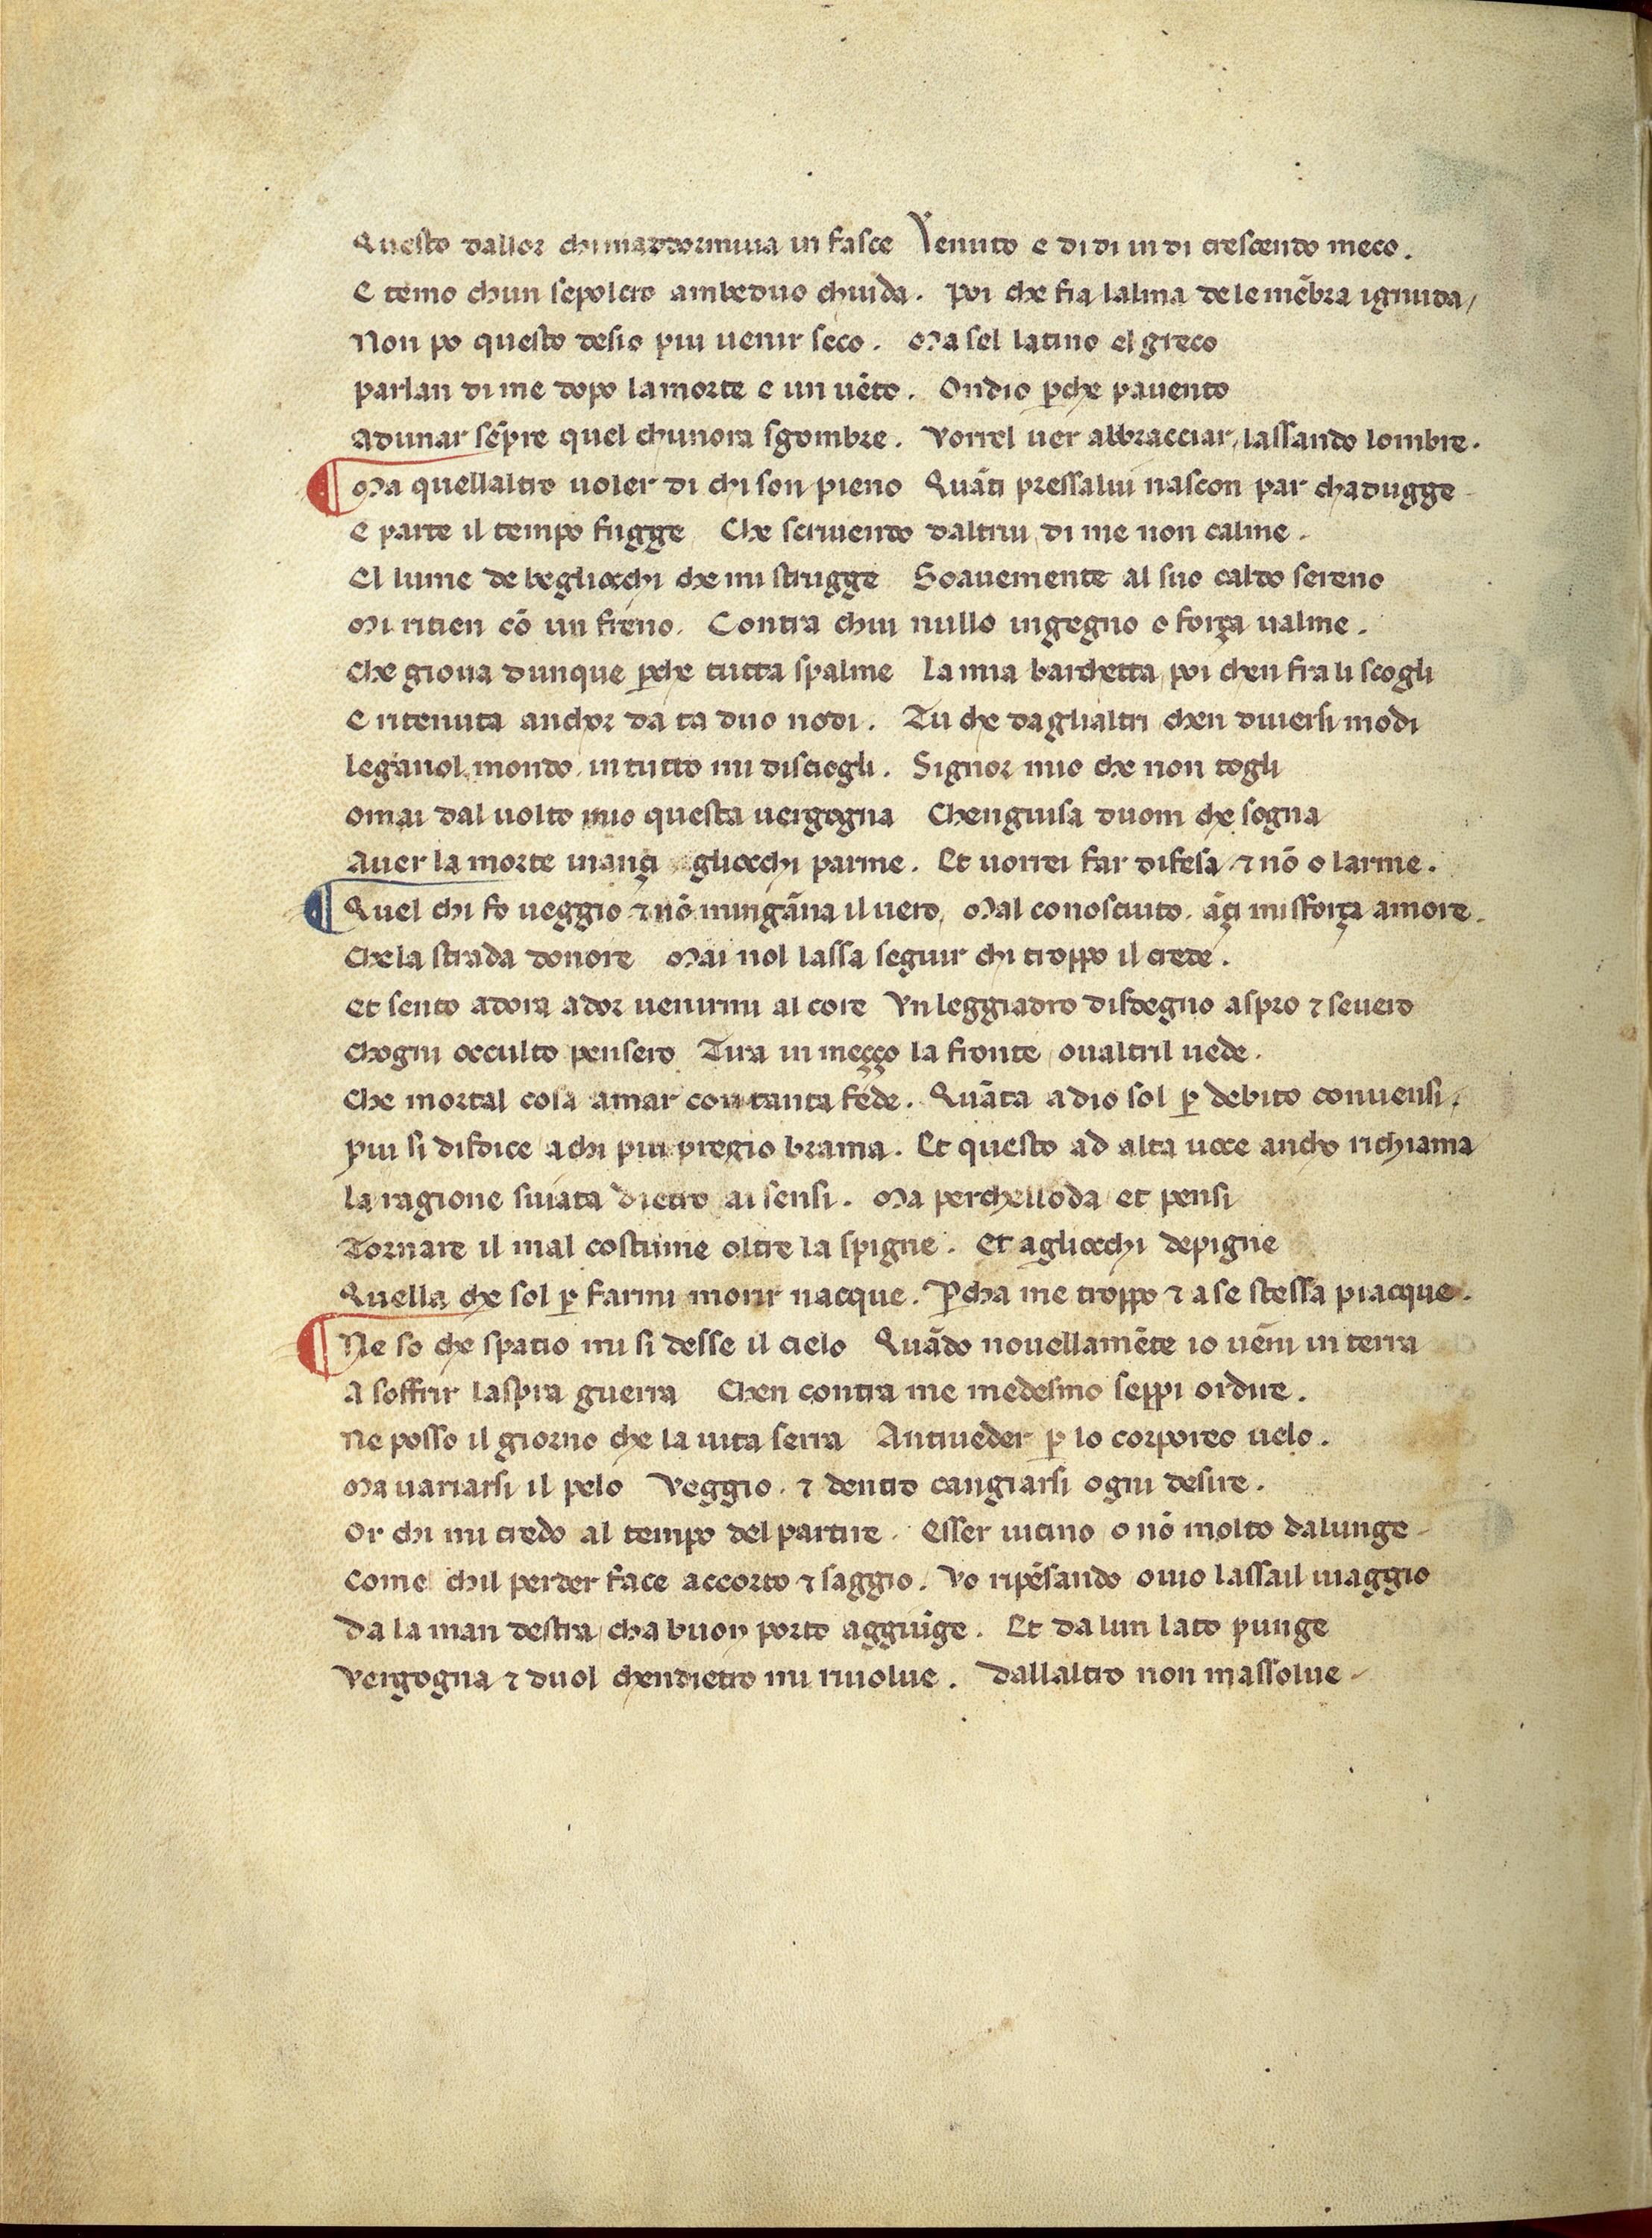 Questo dallor chimaddormiua in fasce Venuto e di di in di crescendo meco.
E temo chun sepolcro ambeduo chiuda. Poi che fia lalma de le mẽbra ignuda/
Non po questo desio piu uenir seco. Ma sel latino el greco
parlan di me dopo la morte e un uẽto. Ondio ꝑche pauento
adunar sẽpre quel chunora sgombre. Vorrel uer abbracciar, lassando lombre.
¶ Ma quellaltro uoler di chi son pieno Quãti pressalui nascon par chadugge
E parte il tempo fugge Che scriuendo daltrui di me non calme.
El lume de begliocchi che mi strugge Soauemente al suo caldo sereno
Mi ritien cõ un freno. Contra chui nullo ingegno o força ualme.
Che gioua dunque ꝑche tutta spalme La mia barchetta, poi chen fra li scogli
E ritenuta anchor da ta duo nodi. Tu che daglialtri chen diuersi modi
leganol mondo, in tutto mi disciogli. Signor mio che non togli
omai dal uolto mio questa uergogna Chenguisa duom che sogna
Auer la morte inançi gliocchi parme. Et uorrei far difesa ⁊ nõ o larme.
¶ Quel chi fo ueggio ⁊ nõ minngãna il uero, Mal conosciuto. ãçi mi sforça amore.
Che la strada donore Mai nol lassa seguir chi troppo il crede.
et sento adora ador uenirmi al core Vn leggiadro disdegno aspro ⁊ seuero
Chogni occulto pensero Tira in meçço la fronte, oualtril uede.
Che mortal cosa amar con tanta fede. Quãta a dio sol ꝑ debito conuensi.
piu si disdice a chi piu pregio brama. Et questo ad alta uoce ancho richiama
la ragione suiata dietro ai sensi. Ma perchelloda et pensi
Tornare il mal costume oltre la spigne. Et agliocchi depigne
Quella che sol ꝑ farmi morir nacque. Ꝑcha me troppo ⁊ a se stessa piacque.
¶ Ne so che spatio mi si desse il cielo Quãdo nouellamẽte io uẽni in terra
A soffrir laspra guerra Chen contra me medesmo seppi ordire.
Ne posso il giorno che la uita serra Antiueder ꝑ lo corporeo uelo.
Ma uariarsi il pelo Veggio. ⁊ dentro cangiarsi ogni desire.
Or chi mi credo al tempo del partire. Esser uicino o nõ molto dalunge
Come chil perder face accorto ⁊ saggio. Vo ripẽsando ouio lassail uiaggio
Da la man destra, cha buon porto aggiũge. Et da lun lato punge
Vergogna ⁊ duol chendietro mi riuolue. Dallaltro non massolue